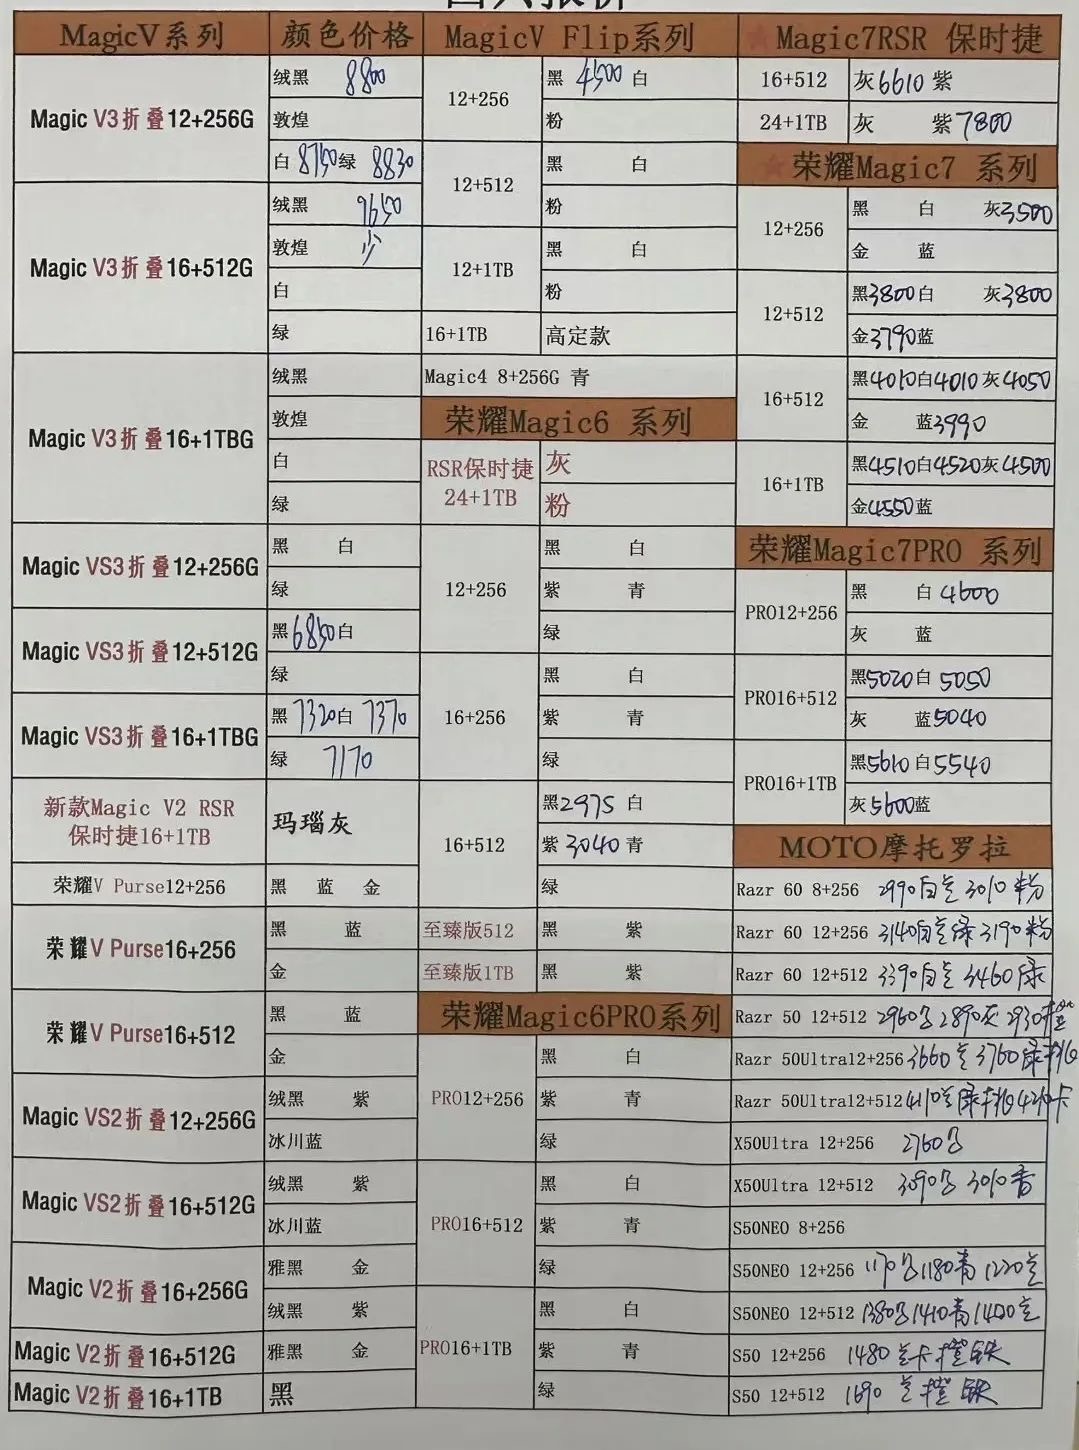 MagicV系列 颜色价格
Magic V3折叠12+256G
绒黑 8800
敦煌
白 8750 绿 8830
Magic V3折叠16+512G
绒黑 9650
敦煌 少
白
绿
Magic V3折叠16+1TBG
绒黑
敦煌
白
绿
Magic VS3折叠12+256G
黑 白
绿
Magic VS3折叠12+512G
黑6850白
绿
Magic VS3折叠16+1TBG
黑 7320白 7370
绿 7170
新款Magic V2 RSR
保时捷16+1TB
玛瑙灰
荣耀V Purse12+256
黑 蓝 金
荣耀V Purse16+256
黑 蓝
金
荣耀V Purse16+512
黑 蓝
金
Magic VS2折叠12+256G
绒黑 紫
冰川蓝
Magic VS2折叠16+512G
绒黑 紫
冰川蓝
Magic V2折叠16+256G
雅黑 金
绒黑 紫
Magic V2折叠16+512G
雅黑 金
Magic V2折叠16+1TB
黑
MagicV Flip系列
12+256
黑 4500 白
粉
12+512
黑 白
粉
12+1TB
黑 白
粉
16+1TB 高定款
Magic4 8+256G 青
荣耀Magic6 系列
RSR保时捷
24+1TB
灰
粉
12+256
黑 白
紫 青
绿
16+256
黑 白
紫 青
绿
16+512
黑2975 白
紫 3040 青
绿
至臻版512 黑 紫
至臻版1TB 黑 紫
荣耀Magic6PRO系列
PRO12+256
黑 白
紫 青
绿
PRO16+512
黑 白
紫 青
绿
PRO16+1TB
黑 白
紫 青
绿
Magic7RSR 保时捷
16+512 灰6610 紫
24+1TB 灰 紫7800
荣耀Magic7 系列
12+256
黑 白 灰3500
金 蓝
12+512
黑3800白 灰3800
金3790蓝
16+512
黑4010白4010灰4050
金 蓝3990
16+1TB
黑4510白4520灰4500
金4550蓝
荣耀Magic7PRO 系列
PRO12+256
黑 白 4600
灰 蓝
PRO16+512
黑5020白 5050
灰 蓝5040
PRO16+1TB
黑5610白5540
灰5600蓝
MOTO摩托罗拉
Razr 60 8+256 2990白兰 3010 粉
Razr 60 12+256 3140白兰绿 3190粉
Razr 60 12+512 3390白兰 3460绿
Razr 50 12+512 2960 2890灰 2930橙
Razr 50Ultra12+256 3660兰 3760绿桃
Razr 50Ultra12+512 4110兰绿桃 卡
X50Ultra 12+256 2760
X50Ultra 12+512 3090 3010青
S50NEO 8+256
S50NEO 12+256 1170 1180青 1220兰
S50NEO 12+512 1380 1410青 1400兰
S50 12+256 1480 兰卡橙铁
S50 12+512 1690 兰橙铁